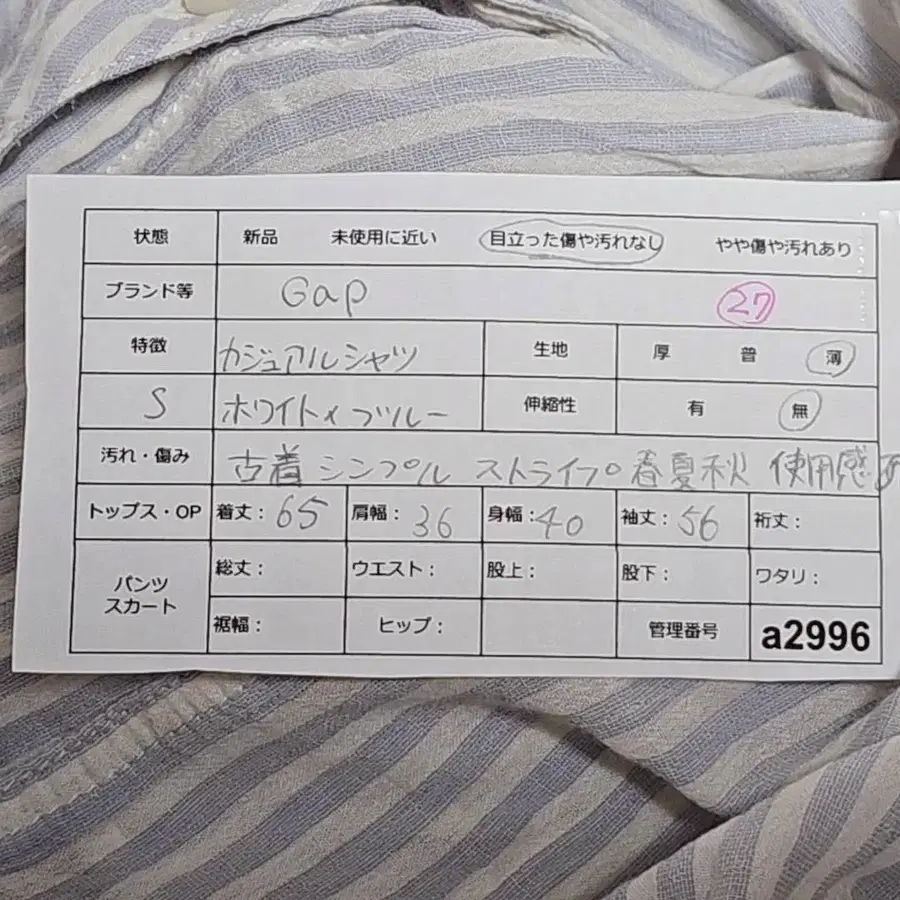 状態 新品 未使用に近い 目立った傷や汚れなし やや傷や汚れあり
ブランド等 Gap 27
特徴 カジュアルシャツ 生地 厚 普 薄
S ホワイト×ブルー 伸縮性 有 無
汚れ・傷み 古着 シンプル ストライプ 春夏秋 使用感
トップス・OP 着丈：65 肩幅：36 身幅：40 袖丈：56 裄丈：
パンツ スカート 総丈： ウエスト： 股上： 股下： ワタリ：
裾幅： ヒップ： 管理番号 a2996